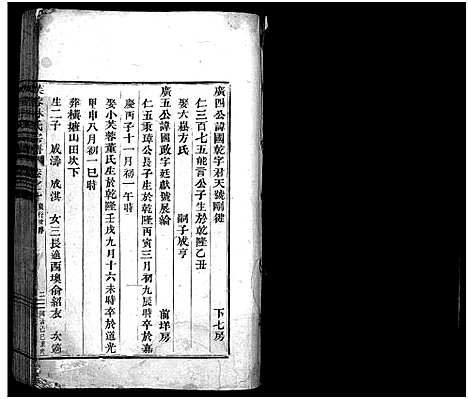 廣四公諱國乾字君天號剛健 下七房
仁三百七五能言公子生於乾隆乙丑
娶大塢方氏 嗣子咸亨
廣五公諱國政字廷獻號展綸 前垟房
仁五秉璋公長子生於乾隆丙寅三月初九辰時卒於嘉
慶丙子十一月初一午時
娶小芙蓉董氏生於乾隆壬戌九月十六未時卒於道光
甲申八月初一巳時
葬橫塘山田坎下
生二子 咸濤 咸淇 女三長適西墺俞紹友 次適